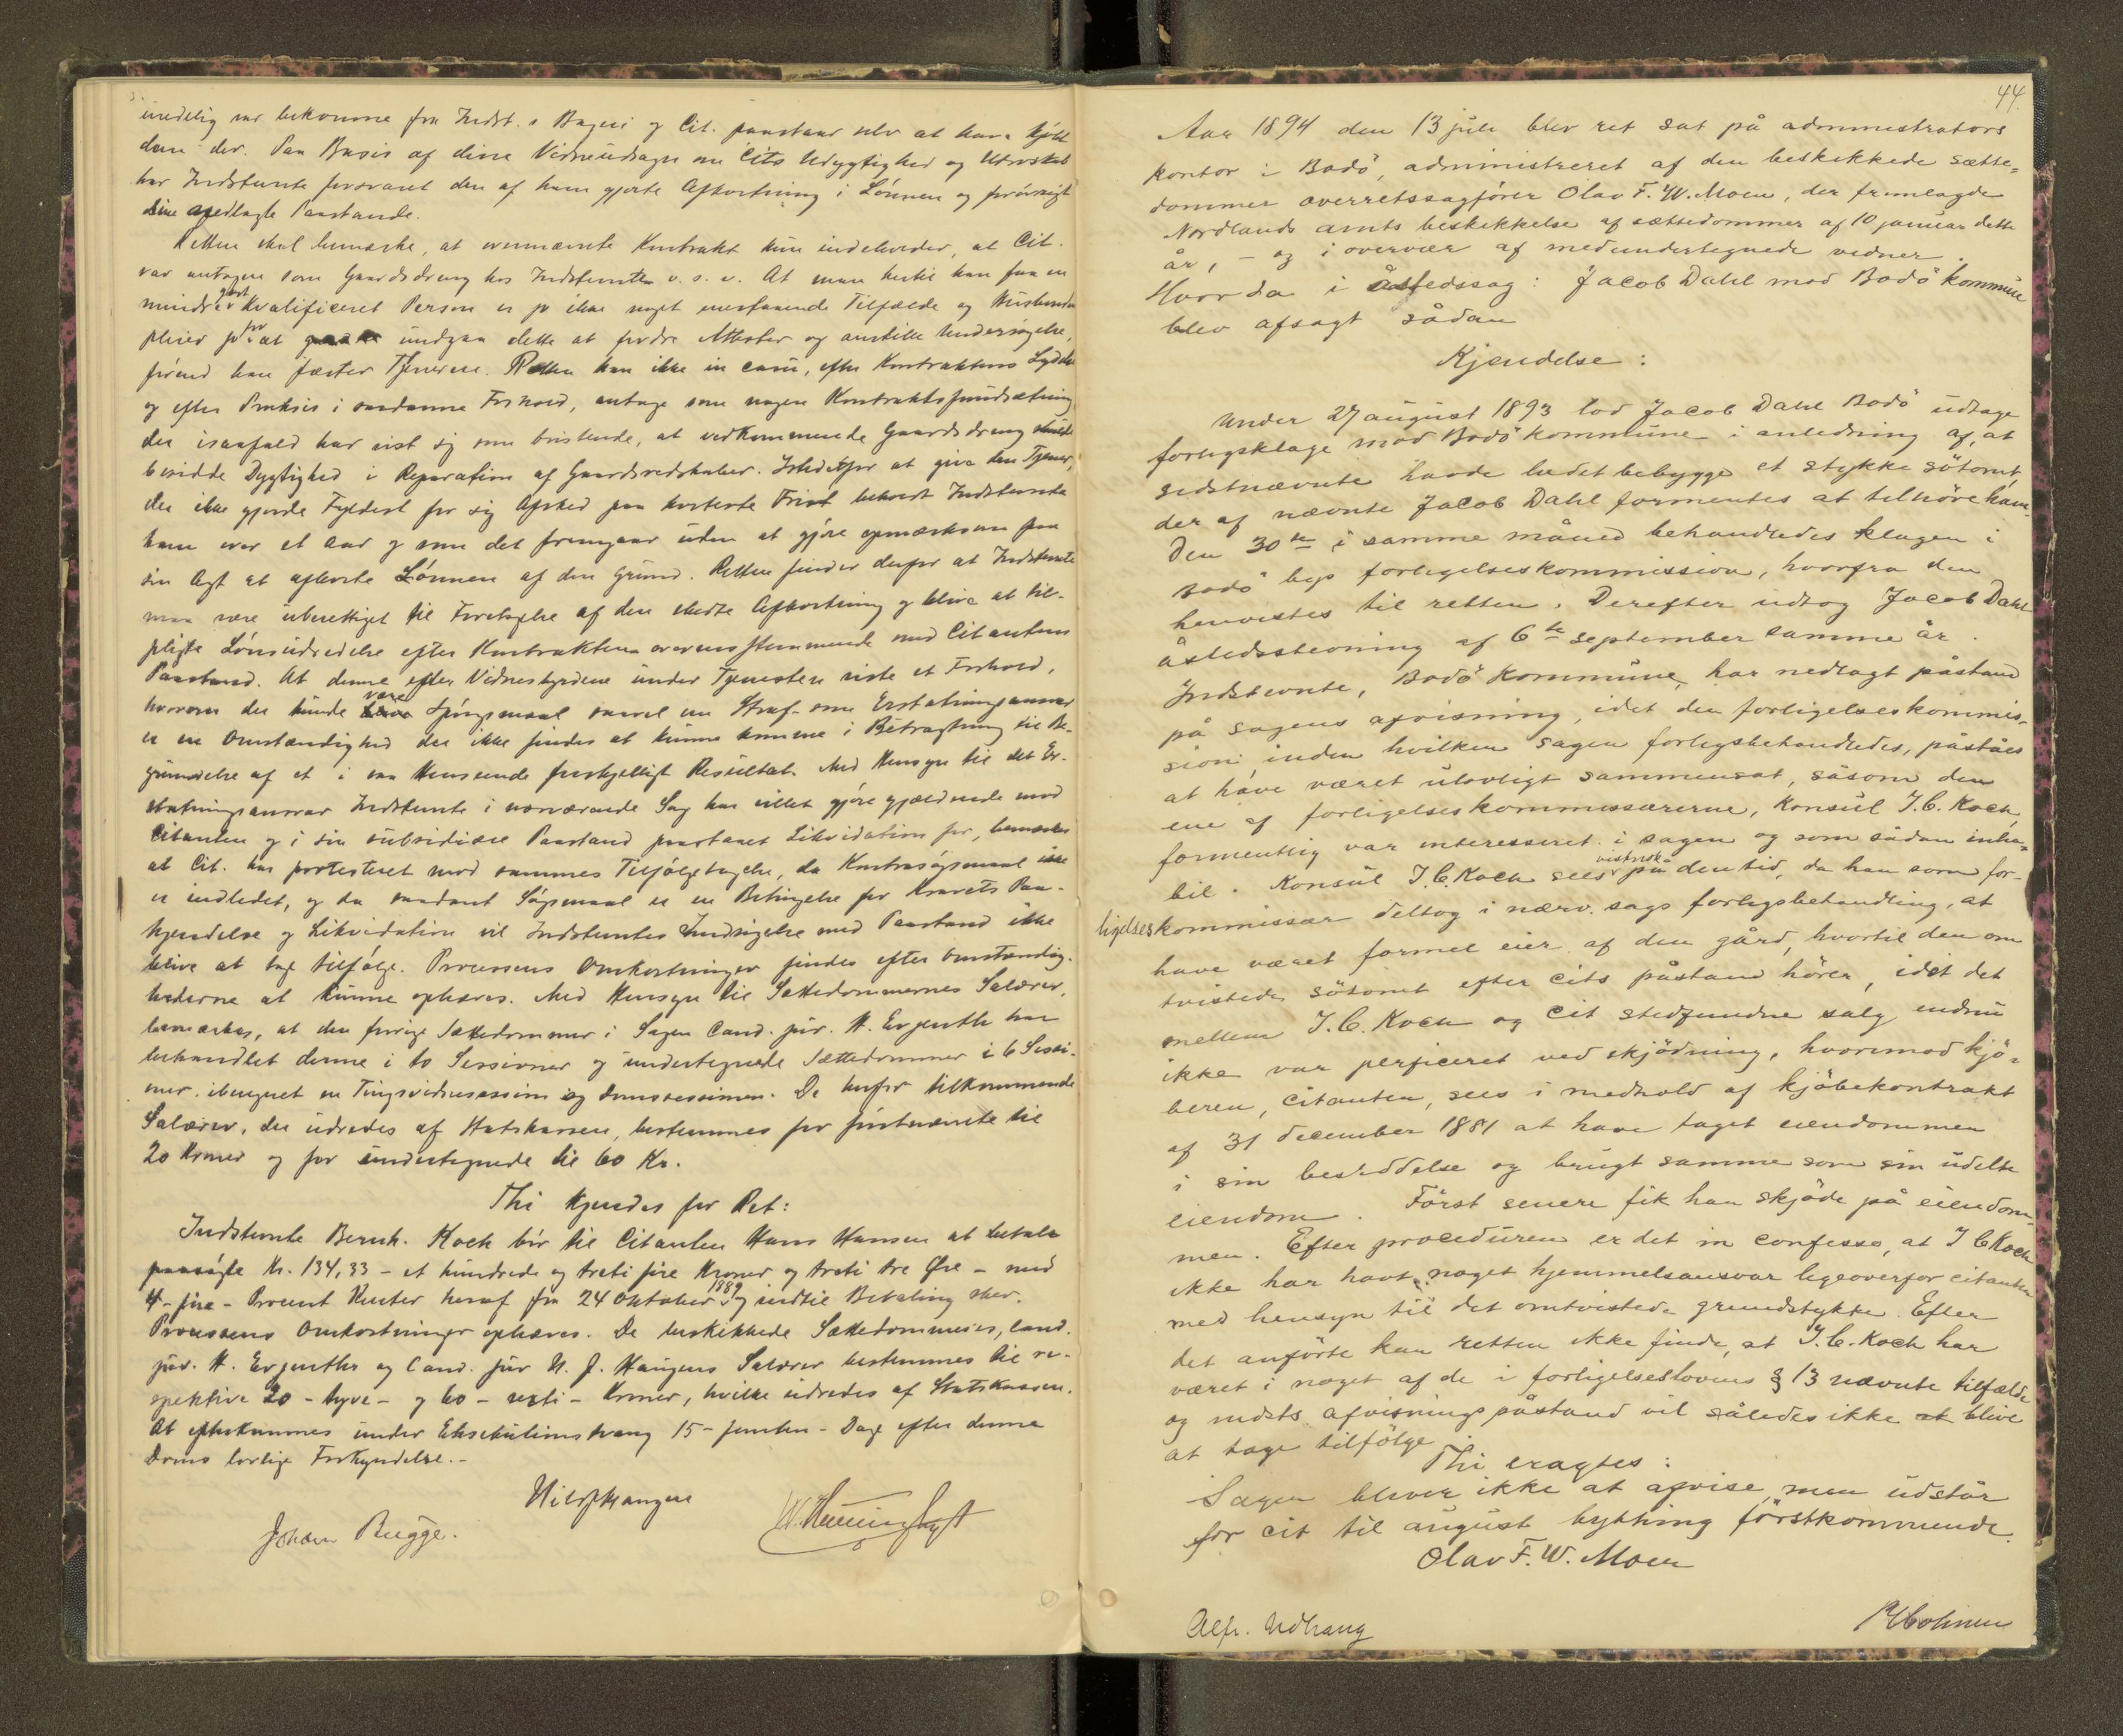 indelig var bekomme fra Indst.s Bageri og Cit. paastaar selv at have kjøbt
dem der. Paa Basis af disse Vidneudsagn om Cits Udygtighed og
har Indstevnte forsvaret den af ham gjorte Afkortning i Lønnen og forøvrigt
sine nedlagte Paastande.
Retten skal bemærke, at ovennævnte Kontrakt kun indeholder, at Cit.
var antagen som Gaardsdreng hos Indstevnte o. s. v. At man hertil kan faa en
mindre godt kvalificeret Person er jo ikke noget enestaaende Tilfælde og Husbonden
pleier jo for at undgaa dette at fordre Attester og anstille Undersøgelse,
førend han fæster Tjenere. Retten kan ikke in casu, efter Kontraktens Lydelse
og efter Praksis i saadanne Forhold, antage som nogen Kontraktsforudsætning
der isaafald har vist sig som bristende, at vedkommende Gaardsdreng skulde
besidde Dygtighed i Reparation af Gaardsredskaber. Istedetfor at give den Tjener,
der ikke gjorde Fyldest for sig Afsked paa korteste Frist beholdt Indstevnte
ham over et Aar og som det fremgaar uden at gjøre opmærksom paa
sin Agt at afkorte Lønnen af den Grund. Retten finder derfor at Indstevnte
maa være uberettiget til Foretagelse af den skedte Afkortning og blive at til-
pligte Lønsudredelse efter Kontrakten overensstemmende med Citantens
Paastand. At denne efter Vidnesbyrdene under Tjenesten viste et Forhold,
hvorom der kunde være Spørgsmaal saavel om Straf- som Erstatningsansvar
er en Omstændighed der ikke findes at kunne komme i Betragtning til Be-
grundelse af et i saa Henseende forskjelligt Resultat. Med Hensyn til det Er-
statningsansvar Indstevnte i nærværende Sag har villet gjøre gjældende mod
Citanten og i sin subsidiære Paastand paastaaet Likvidation for, bemærkes
at Cit. har protesteret mod sammes Tilfølgetagelse, da Kontrasøgsmaal ikke
er indledet, og da saadant Søgsmaal er en Betingelse for Kravets Paa-
kjendelse og Likvidation vil Indstevntes Indsigelse med Paastand ikke
blive at tage tilfølge. Processens Omkostninger findes efter Omstændig-
hederne at kunne ophæves. Med Hensyn til Sættedommernes Salærer,
bemærkes, at den forrige Sættedommer i Sagen Cand. jur. H. Evjenth har
behandlet denne i to Sessioner og undertegnede Sættedommer i 6 Sessi-
oner, iberegnet en Tingsvidnesession og Domssessionen. De herfor tilkommende
Salærer, der udredes af Statskassen, bestemmes for førstnævnte til
20 Kroner og for undertegnede til 60 Kr.
Thi kjendes for Ret:
Indstevnte Bernh. Koch bør til Citanten Hans Hansen at betale
paasøgte Kr. 134,33 - et hundrede og treti fire Kroner og treti tre Øre - med
4 - fire - Procent Renter heraf fra 24 Oktober 1889 og indtil Betaling sker.
Processens Omkostninger ophæves. De beskikkede Sættedommeres, Cand.
jur. H. Evjenths og Cand. jur N. J. Haugens Salærer bestemmes til re-
spektive 20 - tyve - og 60 - sexti - Kroner, hvilke udredes af Statskassen.
At efterkommes under Eksekutionstvang 15 - femten - Dage efter denne
Doms lovlige Forkyndelse. -
Johan Bugge.
44.
Aar 1894 den 13 juli blev ret sat på administrators
kontor i Bodö, administreret af den beskikkede sætte-
dommer overretssagfører Olav F. W. Moen, der fremlagde
Nordlands amts beskikkelse af sættedommer af 10 januar dette
år, - og i overvær af medundertegnede vidner.
Hvor da i åstedssag: Jacob Dahl mod Bodö kommune
blev afsagt sådan
Kjendelse:
Under 27 august 1893 lod Jacob Dahl Bodö udtage
forligsklage mod Bodö kommune i anledning af, at
sidstnævnte havde ladet bebygge et stykke sötomt,
der af nævnte Jacob Dahl formentes at tilhöre ham.
Den 30te i samme måned behandledes klagen i
Bodö bys forligelseskommission, hvorfra den
henvistes til retten. Derefter udtog Jacob Dahl
åstedsstevning af 6te september samme år.
Indstevnte, Bodö kommune, har nedlagt påstand
på sagens afvisning, idet den forligelseskommis-
sion, inden hvilken sagen forligsbehandledes, påståes
at have været ulovligt sammensat, såsom den
ene af forligelseskommissærerne, konsul J. C. Koch,
formentlig var interesseret i sagen og som sådan inha-
bil. Konsul J. C. Koch sees vistnok på den tid, da han som for-
ligelseskommissær deltog i nærv. sags forligsbehandling, at
have været formel eier af den gård, hvortil den om
tvistede sötomt efter cits påstand hörer, idet det
mellem J. C. Koch og Cit stedfundne salg endnu
ikke var perficeret ved skjödning, hvorimod kjö-
beren, citanten, sees i medhold af kjöbekontrakt
af 31 december 1881 at have taget eiendommen
i sin besiddelse og brugt samme som sin udelte
eiendom. Först senere fik han skjöde på eiendom-
men. Efter proceduren er det in confesso, at J C Koch
ikke har havt noget hjemmelsansvar ligeoverfor citanten
med hensyn til det omtvistede grundstykke. Efter
det anförte kan retten ikke finde, at J. C. Koch har
været i noget af de i forligelseslovens § 13 nævnte tilfælde
og indsts afvisningspåstand vil således ikke blive
at tage tilfölge.
Thi eragtes:
Sagen bliver ikke at afvise, men udstår
for cit til august bything förstkommende.
Olav F. W. Moen
Alfr. Udhaug